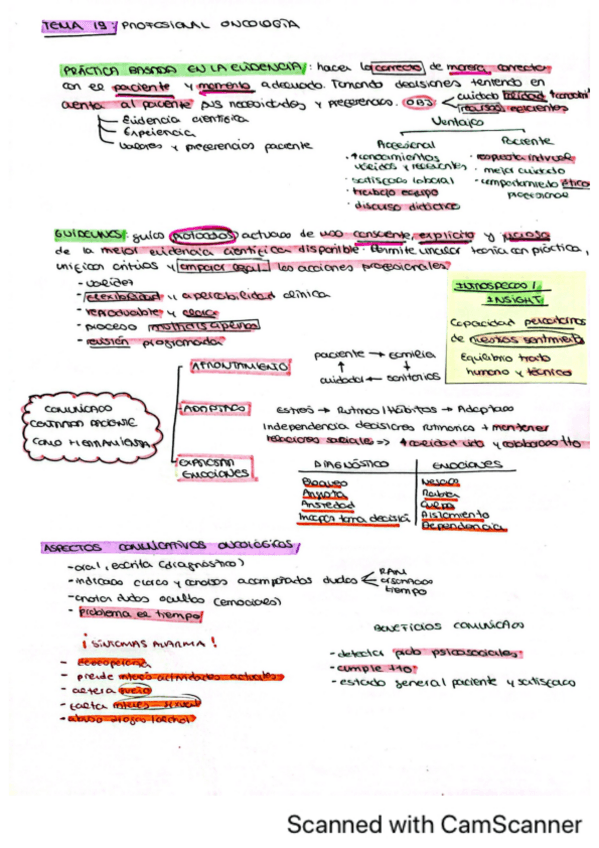 TEMA 19: PROFESIONAL ONCOLOGÍA
PRÁCTICA BASADA EN LA EVIDENCIA: hacer lo correcto de manera correcta
con el paciente y momento adecuado. Tomando decisiones teniendo en
cuenta al paciente sus necesidades y preferencias. OBJ
cuidado calidad
recursos eficientes
- Evidencia científica
- Experiencia
- Valores y preferencias paciente
Ventajas
Profesional
Paciente
· satisfacc laboral
· trabajo equipo
· discurso didáctico
· respuesta individual
· mejor cuidado
· comportamiento ético
profesional
GUIDELINES: guías protocolos actuac de uso consciente, explícito y juicioso
de la mejor evidencia científica disponible. Permite vincular teoría con práctica,
unifican criterios y amparo legal las acciones profesionales.
- validez
- flexibilidad y aplicabilidad clínica
- reproducible y clara
- proceso multidisciplinar
- revisión programada
INTROSPECCIO /
INSIGHT
Capacidad percatarnos
de nuestros sentimient
Equilibrio trato
humano y técnico
COMUNICACO
CENTRADA PACIENTE
COMO HERRAMIENTA
AFRONTAMIENTO
paciente → familia
cuidador ← sanitarios
ADAPTACO
Estrés → Rutinas/Hábitos → Adaptaco
Independencia decisiones + mantener
relaciones sociales => ↑ calidad vida y colaboraco tto
EXPRESAN
EMOCIONES
DIAGNÓSTICO
EMOCIONES
Bloqueo
Angustia
Ansiedad
Incapaz toma decisió
Negació
Rabia
Culpa
Aislamiento
Dependencia
ASPECTOS COMUNICATIVOS ONCOLÓGICOS
- oral, escrita (diagnóstico)
- indicaco claros y concisos acompañados dudas
RAM
tiempo
- anotar dudas ocultas (emociones)
- problema es tiempo
¡SÍNTOMAS ALARMA!
- desespera
- pierde interés actividades actuales
- altera sueño
- falta interés sexual
- abuso drogas/alcohol
BENEFICIOS COMUNICACO
- detecta prob psicosociales
- cumple tto
- estado general paciente y satisfacc
Scanned with CamScanner